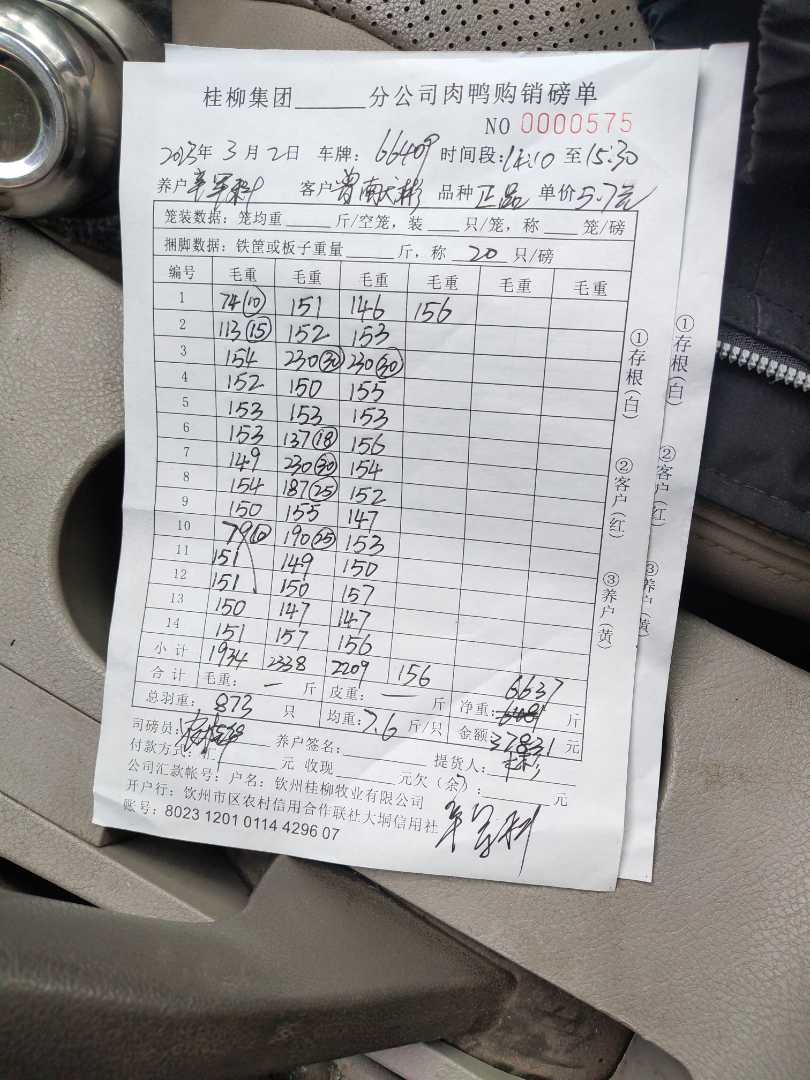 桂柳集团______分公司肉鸭购销磅单
NO 0000575
2023年 3月 2日 车牌: 66409 时间段: 14:10 至 15:30
养户 客户 曾南 品种 正品 单价 5.7元
笼装数据: 笼均重____斤/空笼, 装___只/笼, 称___笼/磅
捆脚数据: 铁筐或板子重量____斤, 称 20 只/磅
编号 毛重 毛重 毛重 毛重 毛重 毛重
1 74(10) 151 146 156
2 113(15) 152 153
3 154 230(30) 230(30)
4 152 150 155
5 153 153 153
6 153 137(18) 156
7 149 230(30) 154
8 154 187(25) 152
9 150 155 147
10 79(10) 190(25) 153
11 151 149 150
12 151 150 157
13 150 147 147
14 151 157 156
小计 1934 2338 2209 156
合计 毛重: — 斤 皮重: — 斤 净重: 6637 斤
总羽重: 873 只 均重: 7.6 斤/只 金额 37831 元
司磅员: 养户签名: 提货人:
付款方式: 汇____元 收现____元欠(余): ____元
公司汇款帐号: 户名: 钦州桂柳牧业有限公司
开户行: 钦州市区农村信用合作联社大垌信用社
账号: 8023 1201 0114 4296 07
①存根(白)
②客户(红)
③养户(黄)
①存根(白)
②客户(红)
③养户(黄)